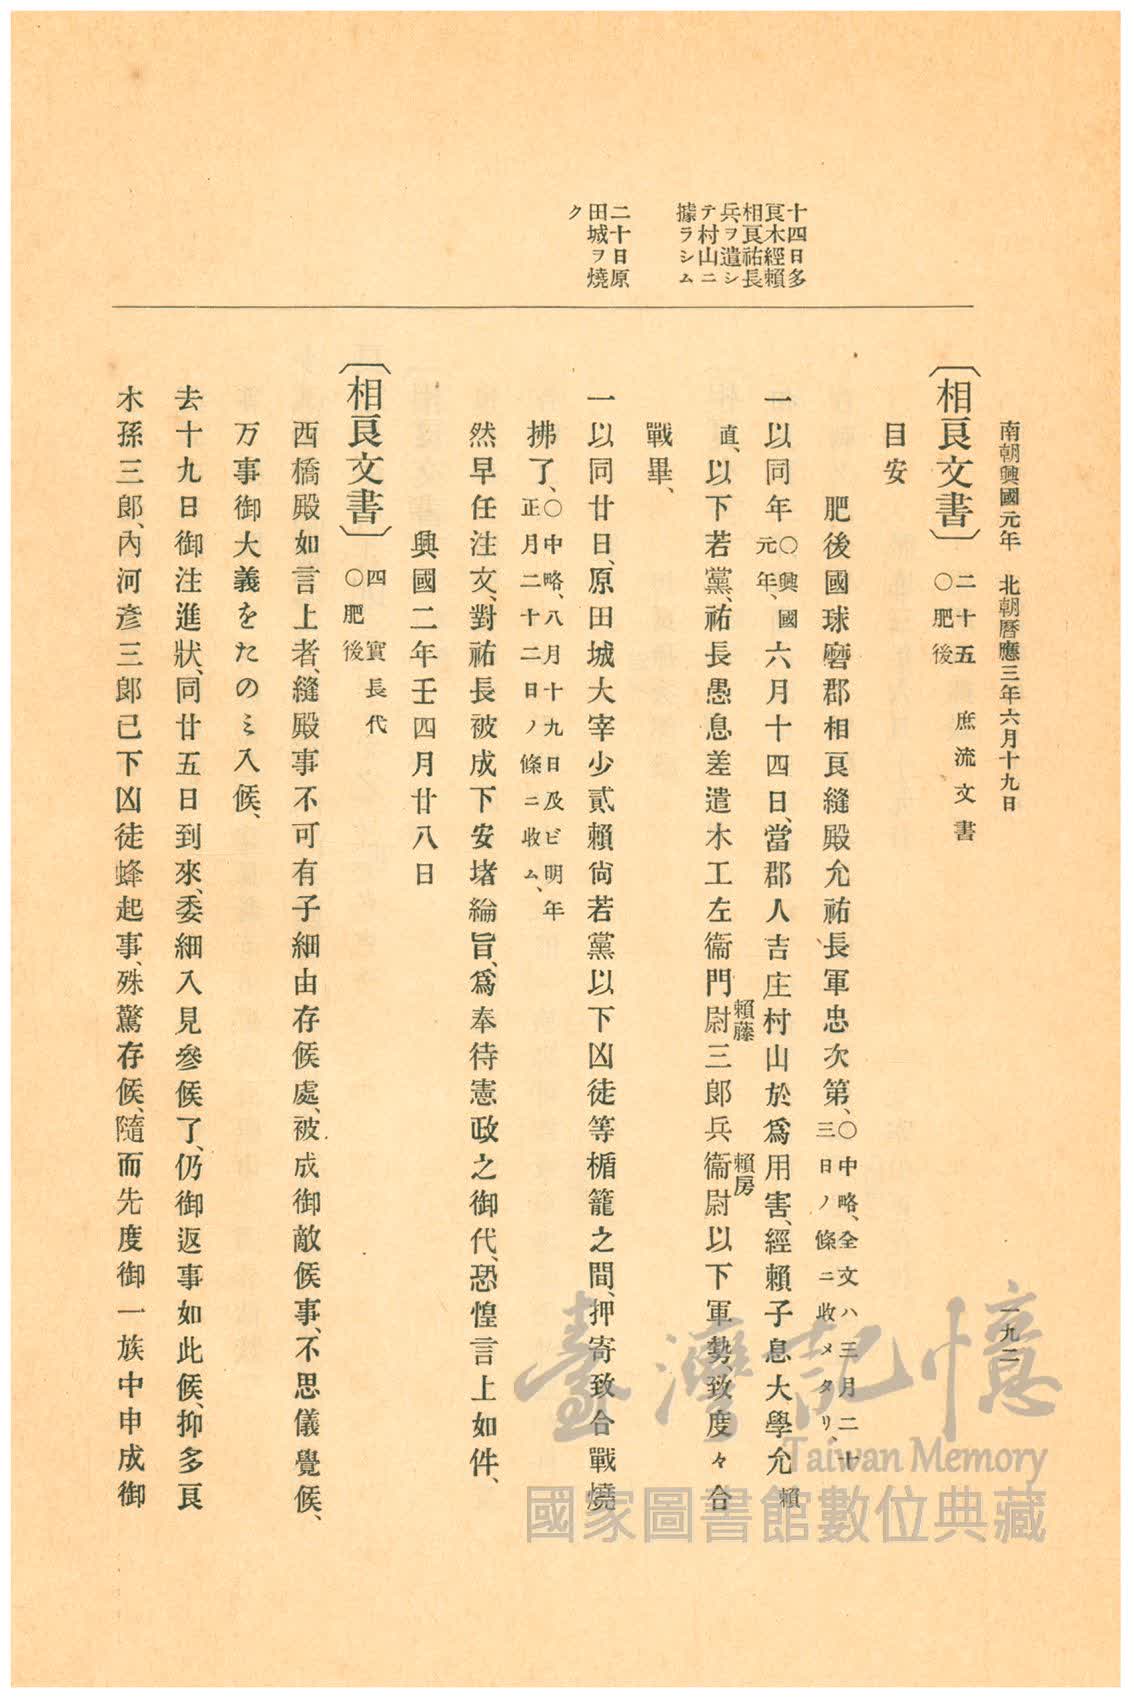 南朝興國元年　北朝曆應三年六月十九日
一九二
十四日多
良木經賴
相良祐長
兵ヲ遣シ
テ村山ニ
據ラシム
二十日原
田城ヲ燒
ク
〔相良文書〕二十五　庶流文書
○肥後
目安
肥後國球磨郡相良縫殿允祐長軍忠次第、○中略、全文ハ三月二十
三日ノ條ニ收メタリ、
一以同年○興國
元年、六月十四日、當郡人吉庄村山於爲用害、經賴子息大學允賴
直、以下若黨、祐長愚息差遣木工左衞門尉賴藤三郎兵衞尉賴房以下軍勢、致度々合
戰畢、
一以同廿日、原田城大宰少貳賴尙若黨以下凶徒等楯籠之間、押寄致合戰燒
拂了、○中略、八月十九日及ビ明年
正月二十二日ノ條ニ收ム、
然早任注文、對祐長被成下安堵綸旨、爲奉待憲政之御代、恐惶言上如件、
興國二年壬四月廿八日
〔相良文書〕四　實長代
○肥後
西橋殿如言上者、縫殿事不可有子細由存候處、被成御敵候事、不思儀覺候、
万事御大義をたのミ入候、
去十九日御注進狀、同廿五日到來、委細入見參候了、仍御返事如此候、抑多良
木孫三郎、內河彥三郎已下凶徒蜂起事、殊驚存候、隨而先度御一族中申成御
臺灣記憶
Taiwan Memory
國家圖書館數位典藏